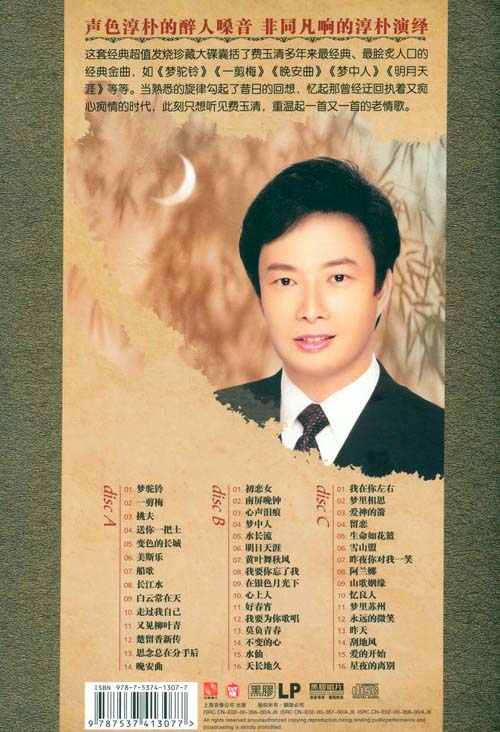 声色淳朴的醉人嗓音 非同凡响的淳朴演绎
这套经典超值发烧珍藏大碟囊括了费玉清多年来最经典、最脍炙人口的
经典金曲，如《梦驼铃》《一剪梅》《晚安曲》《梦中人》《明月天
涯》等等。当熟悉的旋律勾起了昔日的回想，忆起那曾经迂回执着又痴
心痴情的时代，此刻只想听见费玉清，重温起一首又一首的老情歌。
disc A
01. 梦驼铃
02. 一剪梅
03. 挑夫
04. 送你一把土
05. 变色的长城
06. 美斯乐
07. 船歌
08. 长江水
09. 白云常在天
10. 走过我自己
11. 又见柳叶青
12. 楚留香新传
13. 思念总在分手后
14. 晚安曲
disc B
01. 初恋女
02. 南屏晚钟
03. 心声泪痕
04. 梦中人
05. 水长流
06. 明日天涯
07. 黄叶舞秋风
08. 我要你忘了我
09. 在银色月光下
10. 心上人
11. 好春宵
12. 我要为你歌唱
13. 莫负青春
14. 不变的心
15. 水仙
16. 天长地久
disc C
01. 我在你左右
02. 梦里相思
03. 爱神的箭
04. 留恋
05. 生命如花篮
06. 雪山盟
07. 昨夜你对我一笑
08. 阿兰娜
09. 山歌姻缘
10. 忆良人
11. 梦里苏州
12. 永远的微笑
13. 昨天
14. 刮地风
15. 爱的开始
16. 星夜的离别
ISBN 978-7-5374-1307-7
9 787537 413077 >
黑膠 LP 黑膠唱片
上海音像公司 出版 版权所有·翻版必究
ISRC CN-E02-00-356-00/A.J6 ISRC CN-E02-00-357-00/A.J6 ISRC CN-E02-00-358-00/A.J6
All rights reserved.
broadcasting is strictly prohibited.